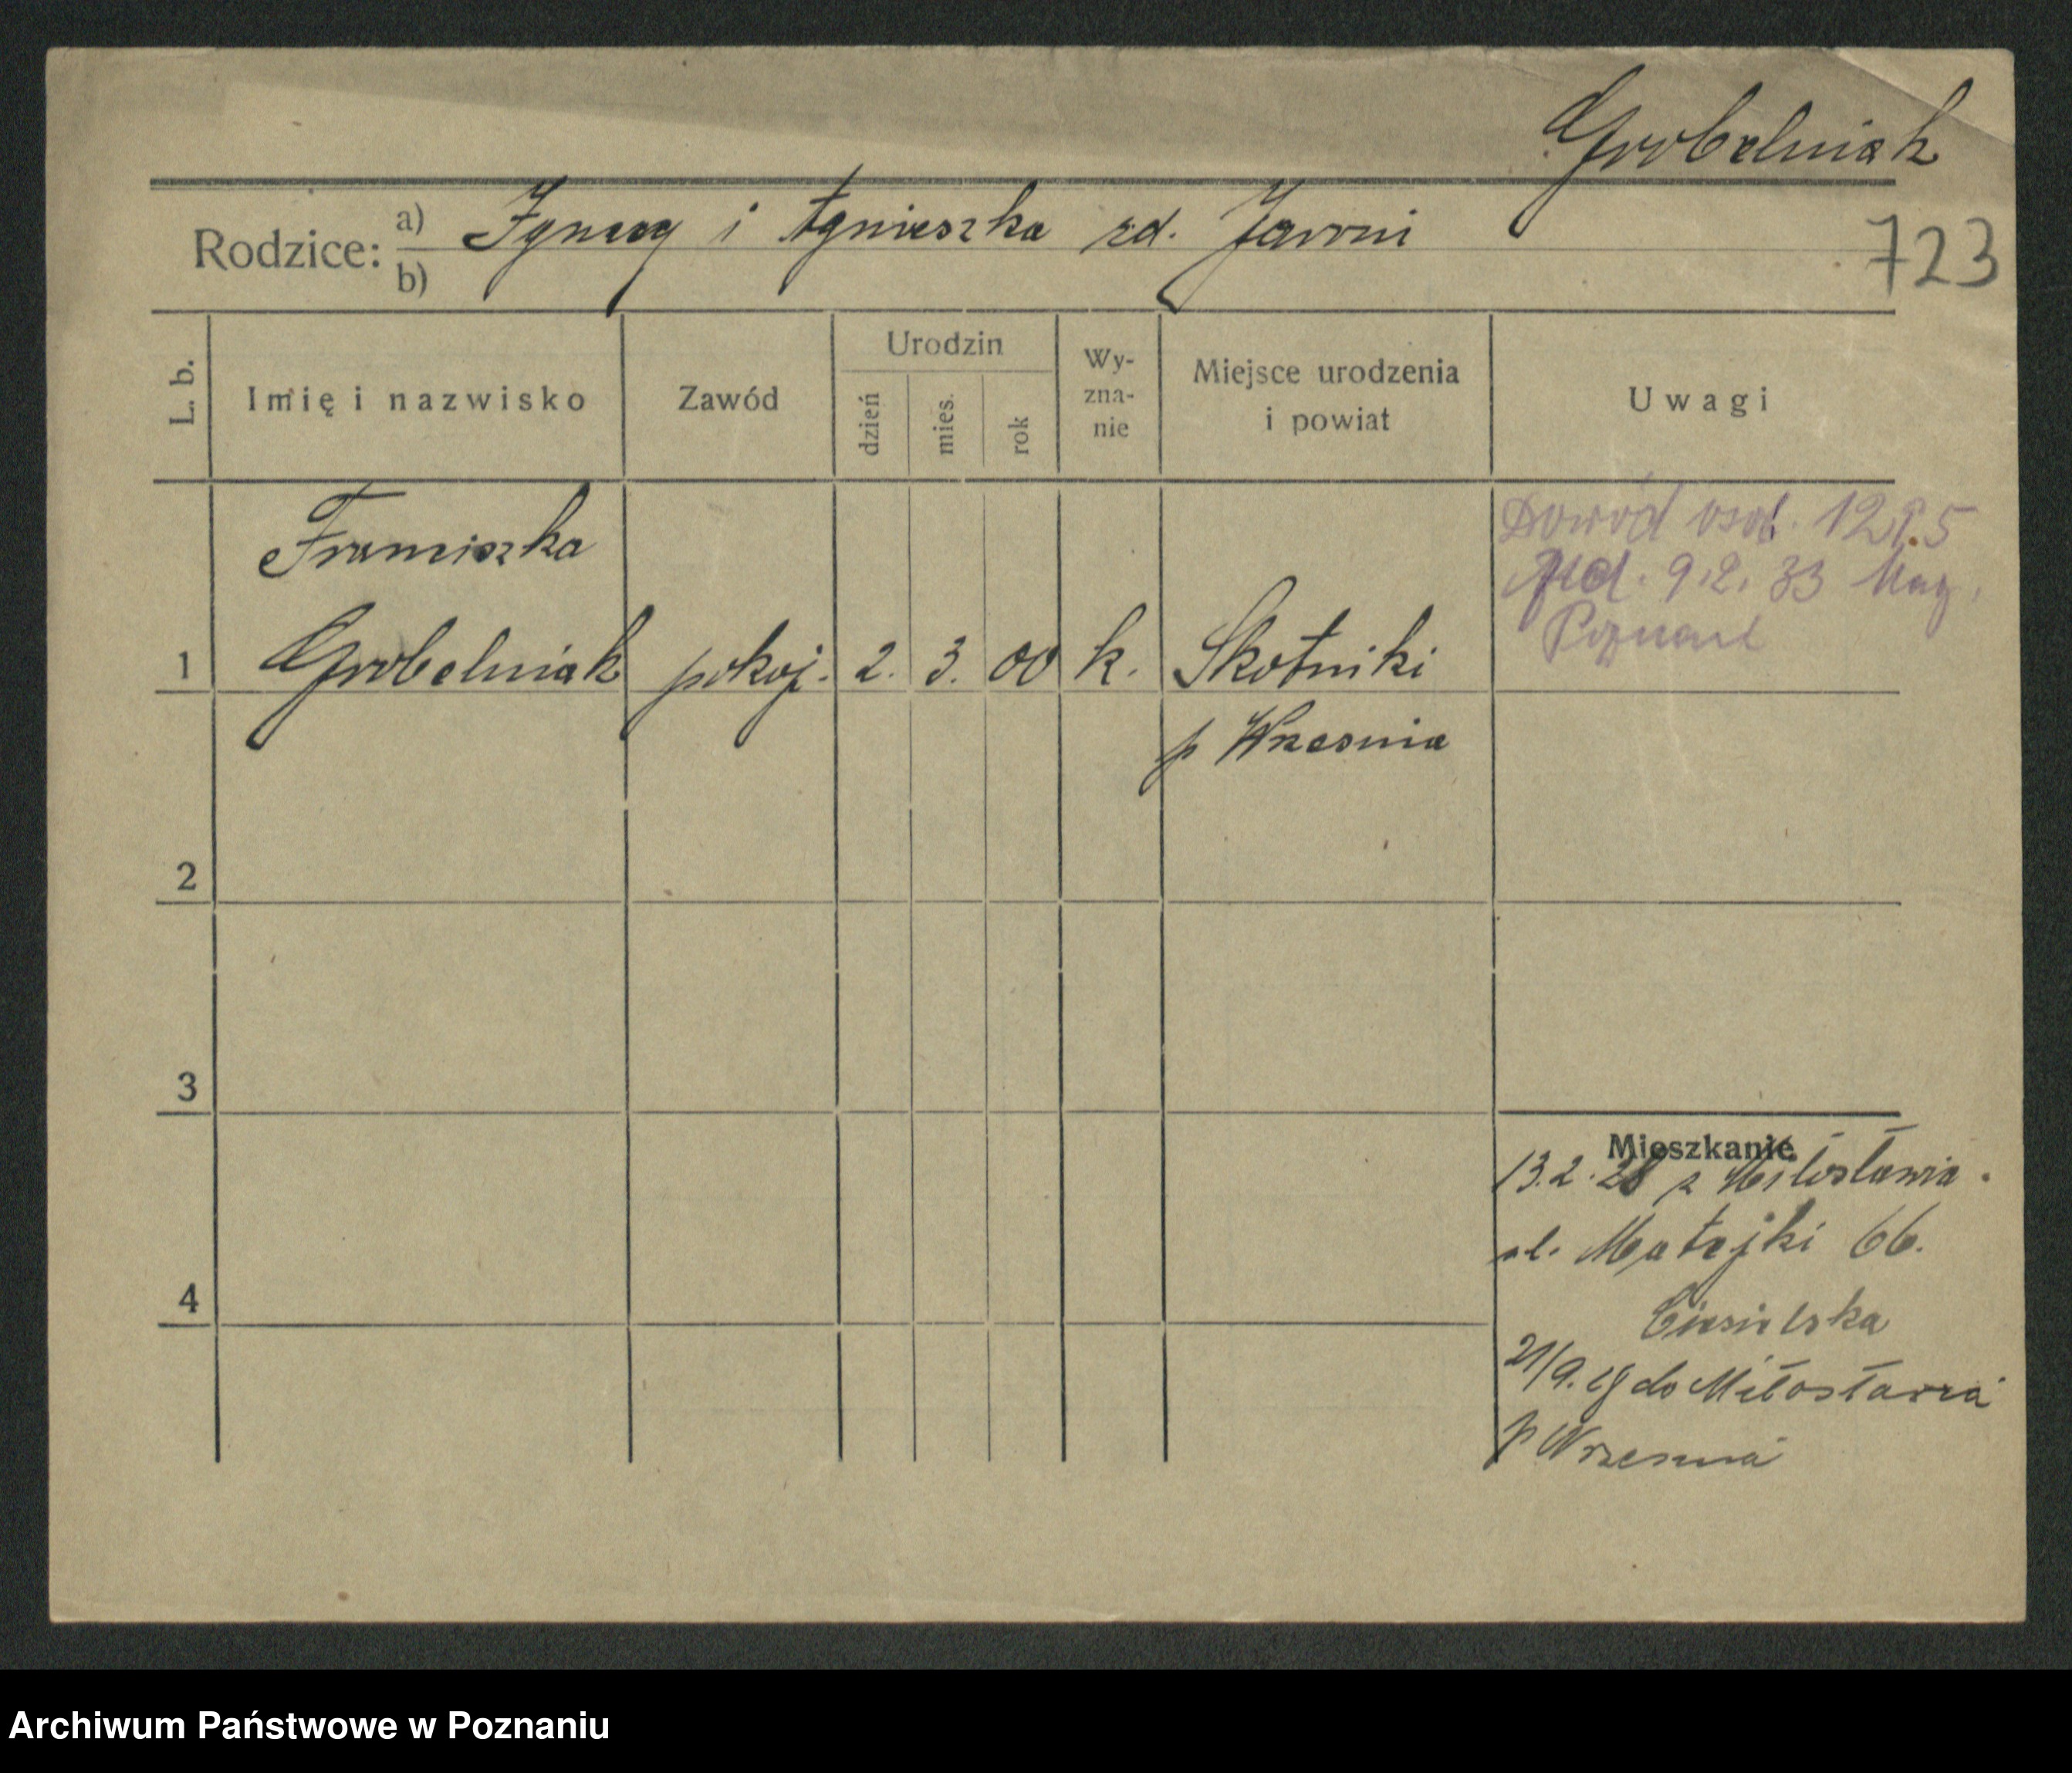 Grobelniak
723
Rodzice: a) Ignacy i Agnieszka zd.
b)
L. b. Imię i nazwisko Zawód Urodzin dzień mies. rok Wy-zna-nie Miejsce urodzenia i powiat Uwagi
Franciszka
1 Grobelniak pokoj. 2. 3. 00 k. Skotniki
p Wrzesnia
Dowód osob.
9.2.33 Mag.
Poznań
2
3
4
Mieszkanie
13.2.28 z Miłosławia.
ul. Matejki 66.
Ciesielska
21/9. do Miłosławia
p Wrzesnia
Archiwum Państwowe w Poznaniu